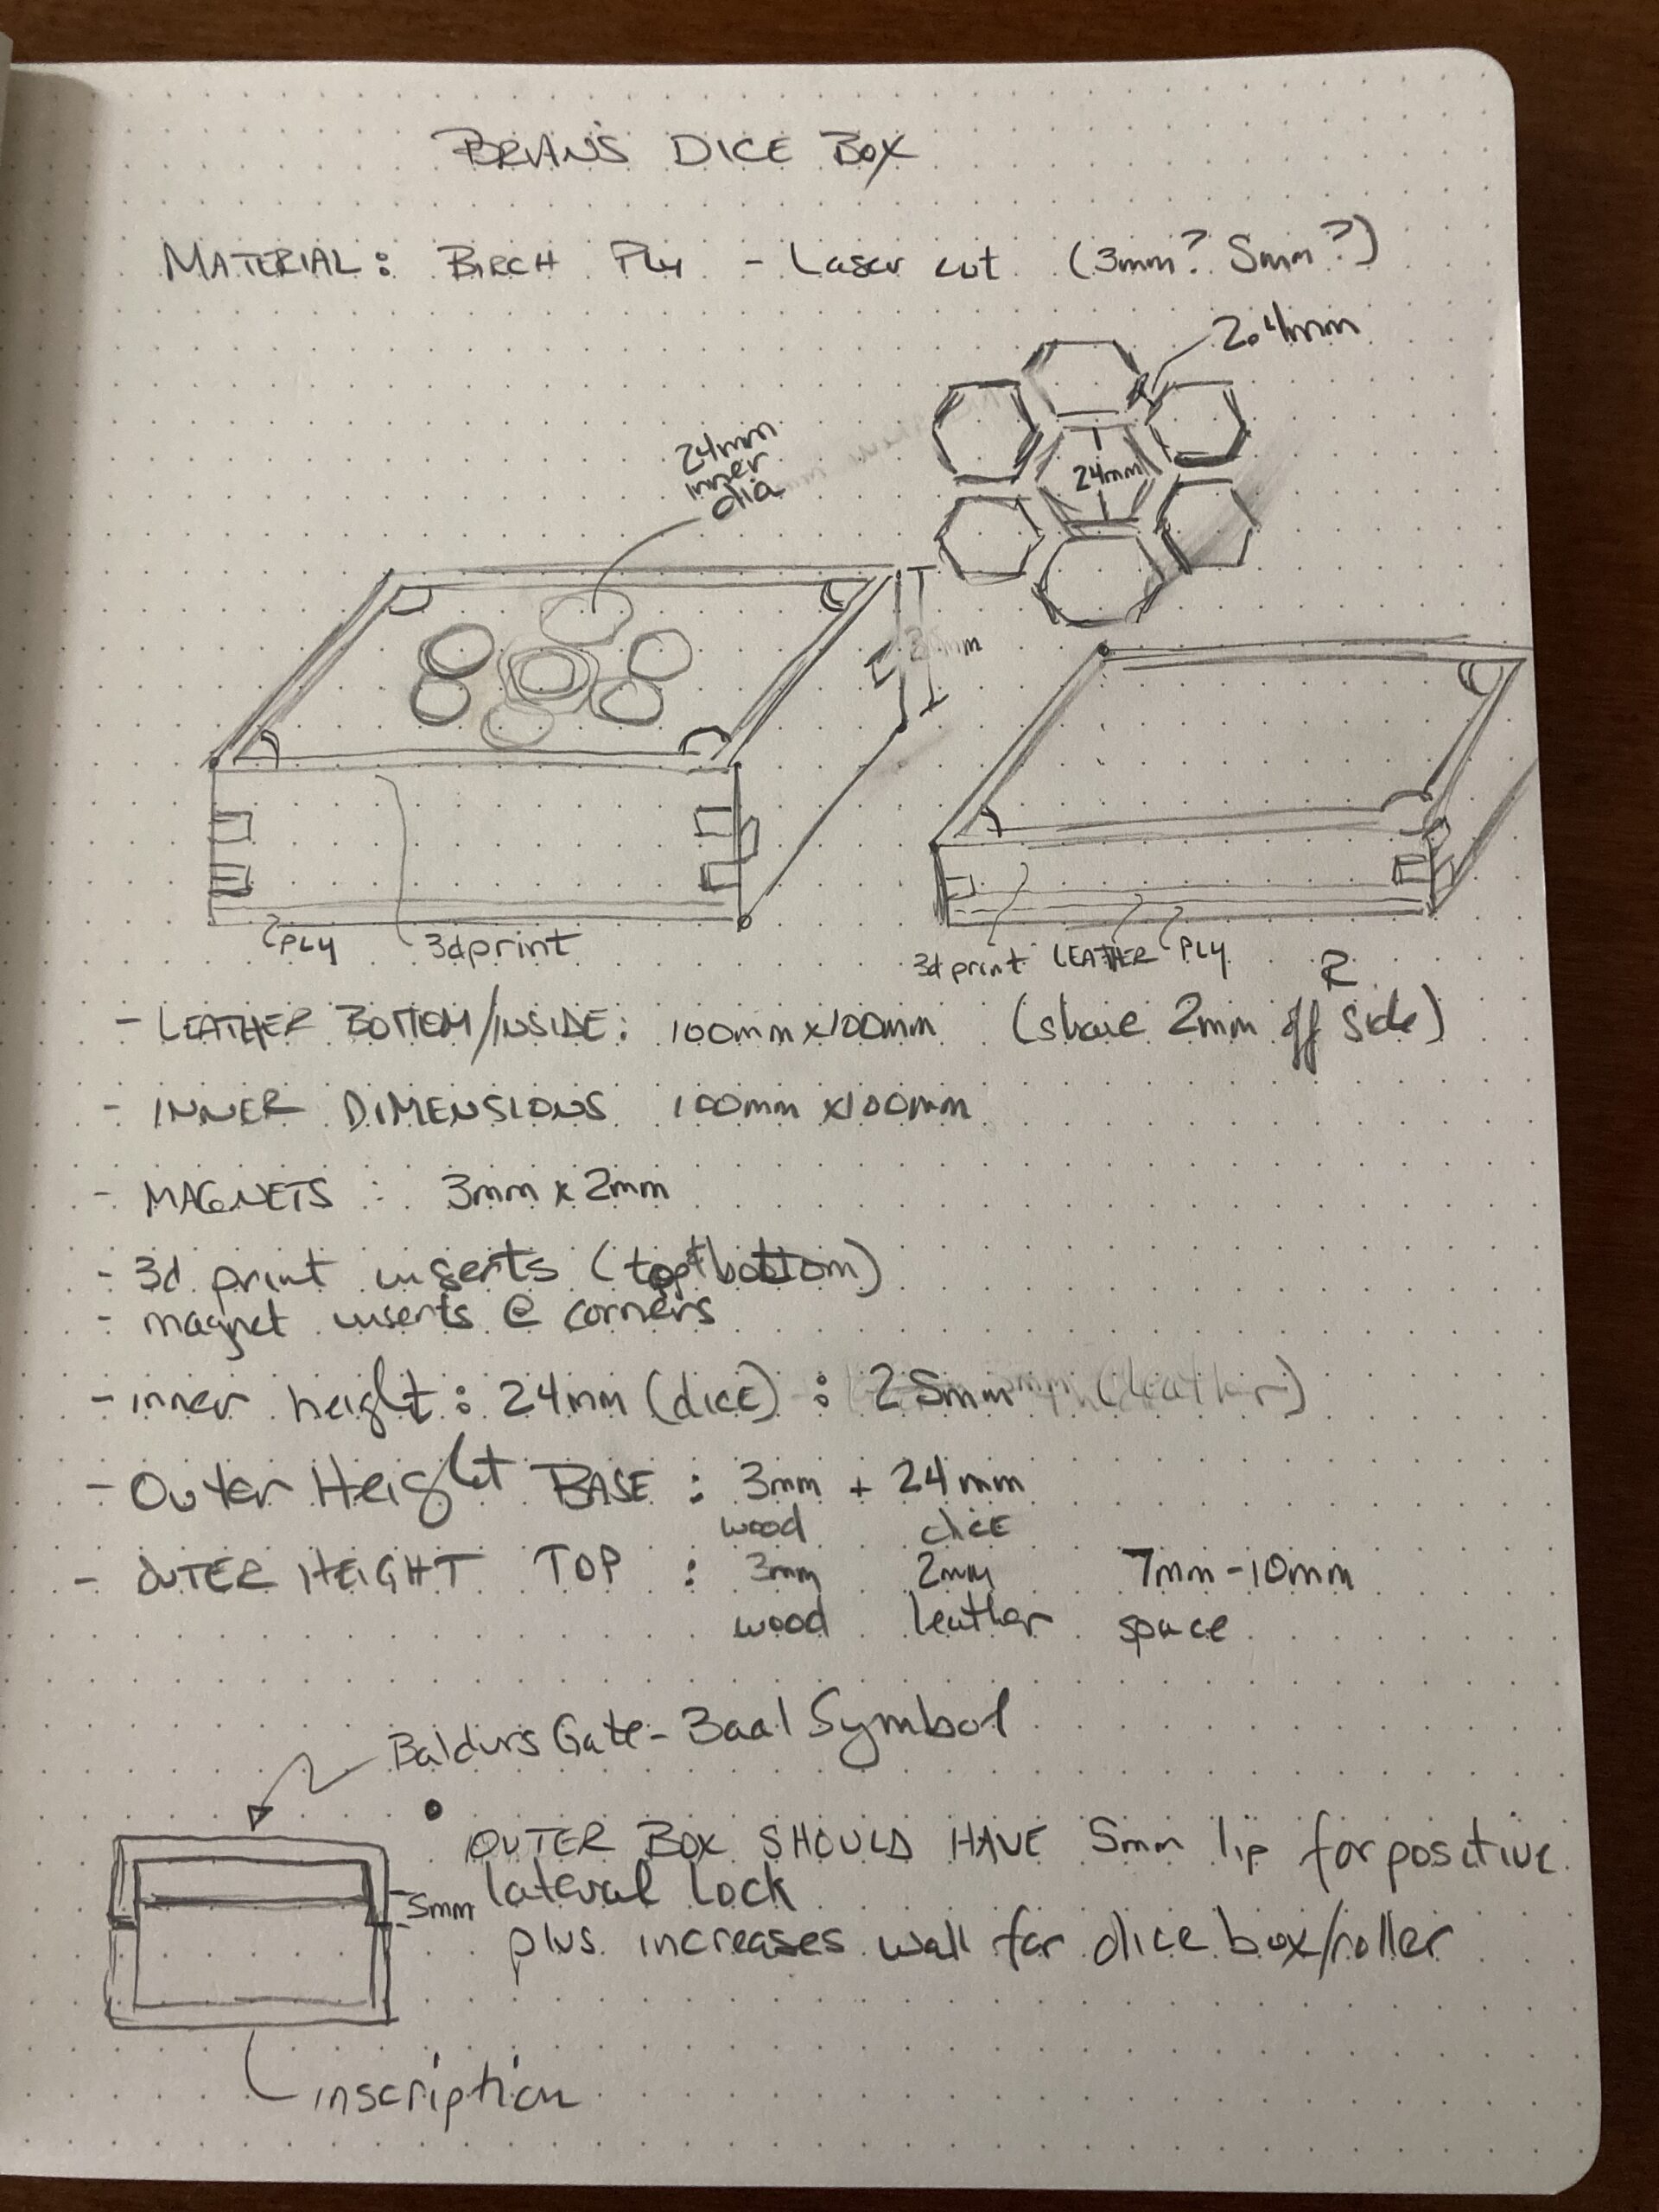 BRIAN'S DICE BOX
MATERIAL: BIRCH Ply - Laser cut (3mm? 5mm?)
2.4mm
24mm
inner
dia
24mm
PLY
3dprint
3d print LEATHER PLY
R
- LEATHER BOTTOM/INSIDE: 100mm x100mm (shave 2mm off side)
- INNER DIMENSIONS 100mm x100mm
- MAGNETS : 3mm x 2mm
- 3d print inserts (top+bottom)
- magnet inserts @ corners
- inner height: 24mm (dice) : 25mm (leather)
- Outer Height BASE : 3mm + 24mm
wood dice
- OUTER HEIGHT TOP : 3mm 2mm 7mm-10mm
wood leather space
Baldurs Gate - Baal Symbol
• OUTER BOX SHOULD HAVE 5mm lip for positive
lateral lock
5mm
plus increases wall for dice box/roller
inscription